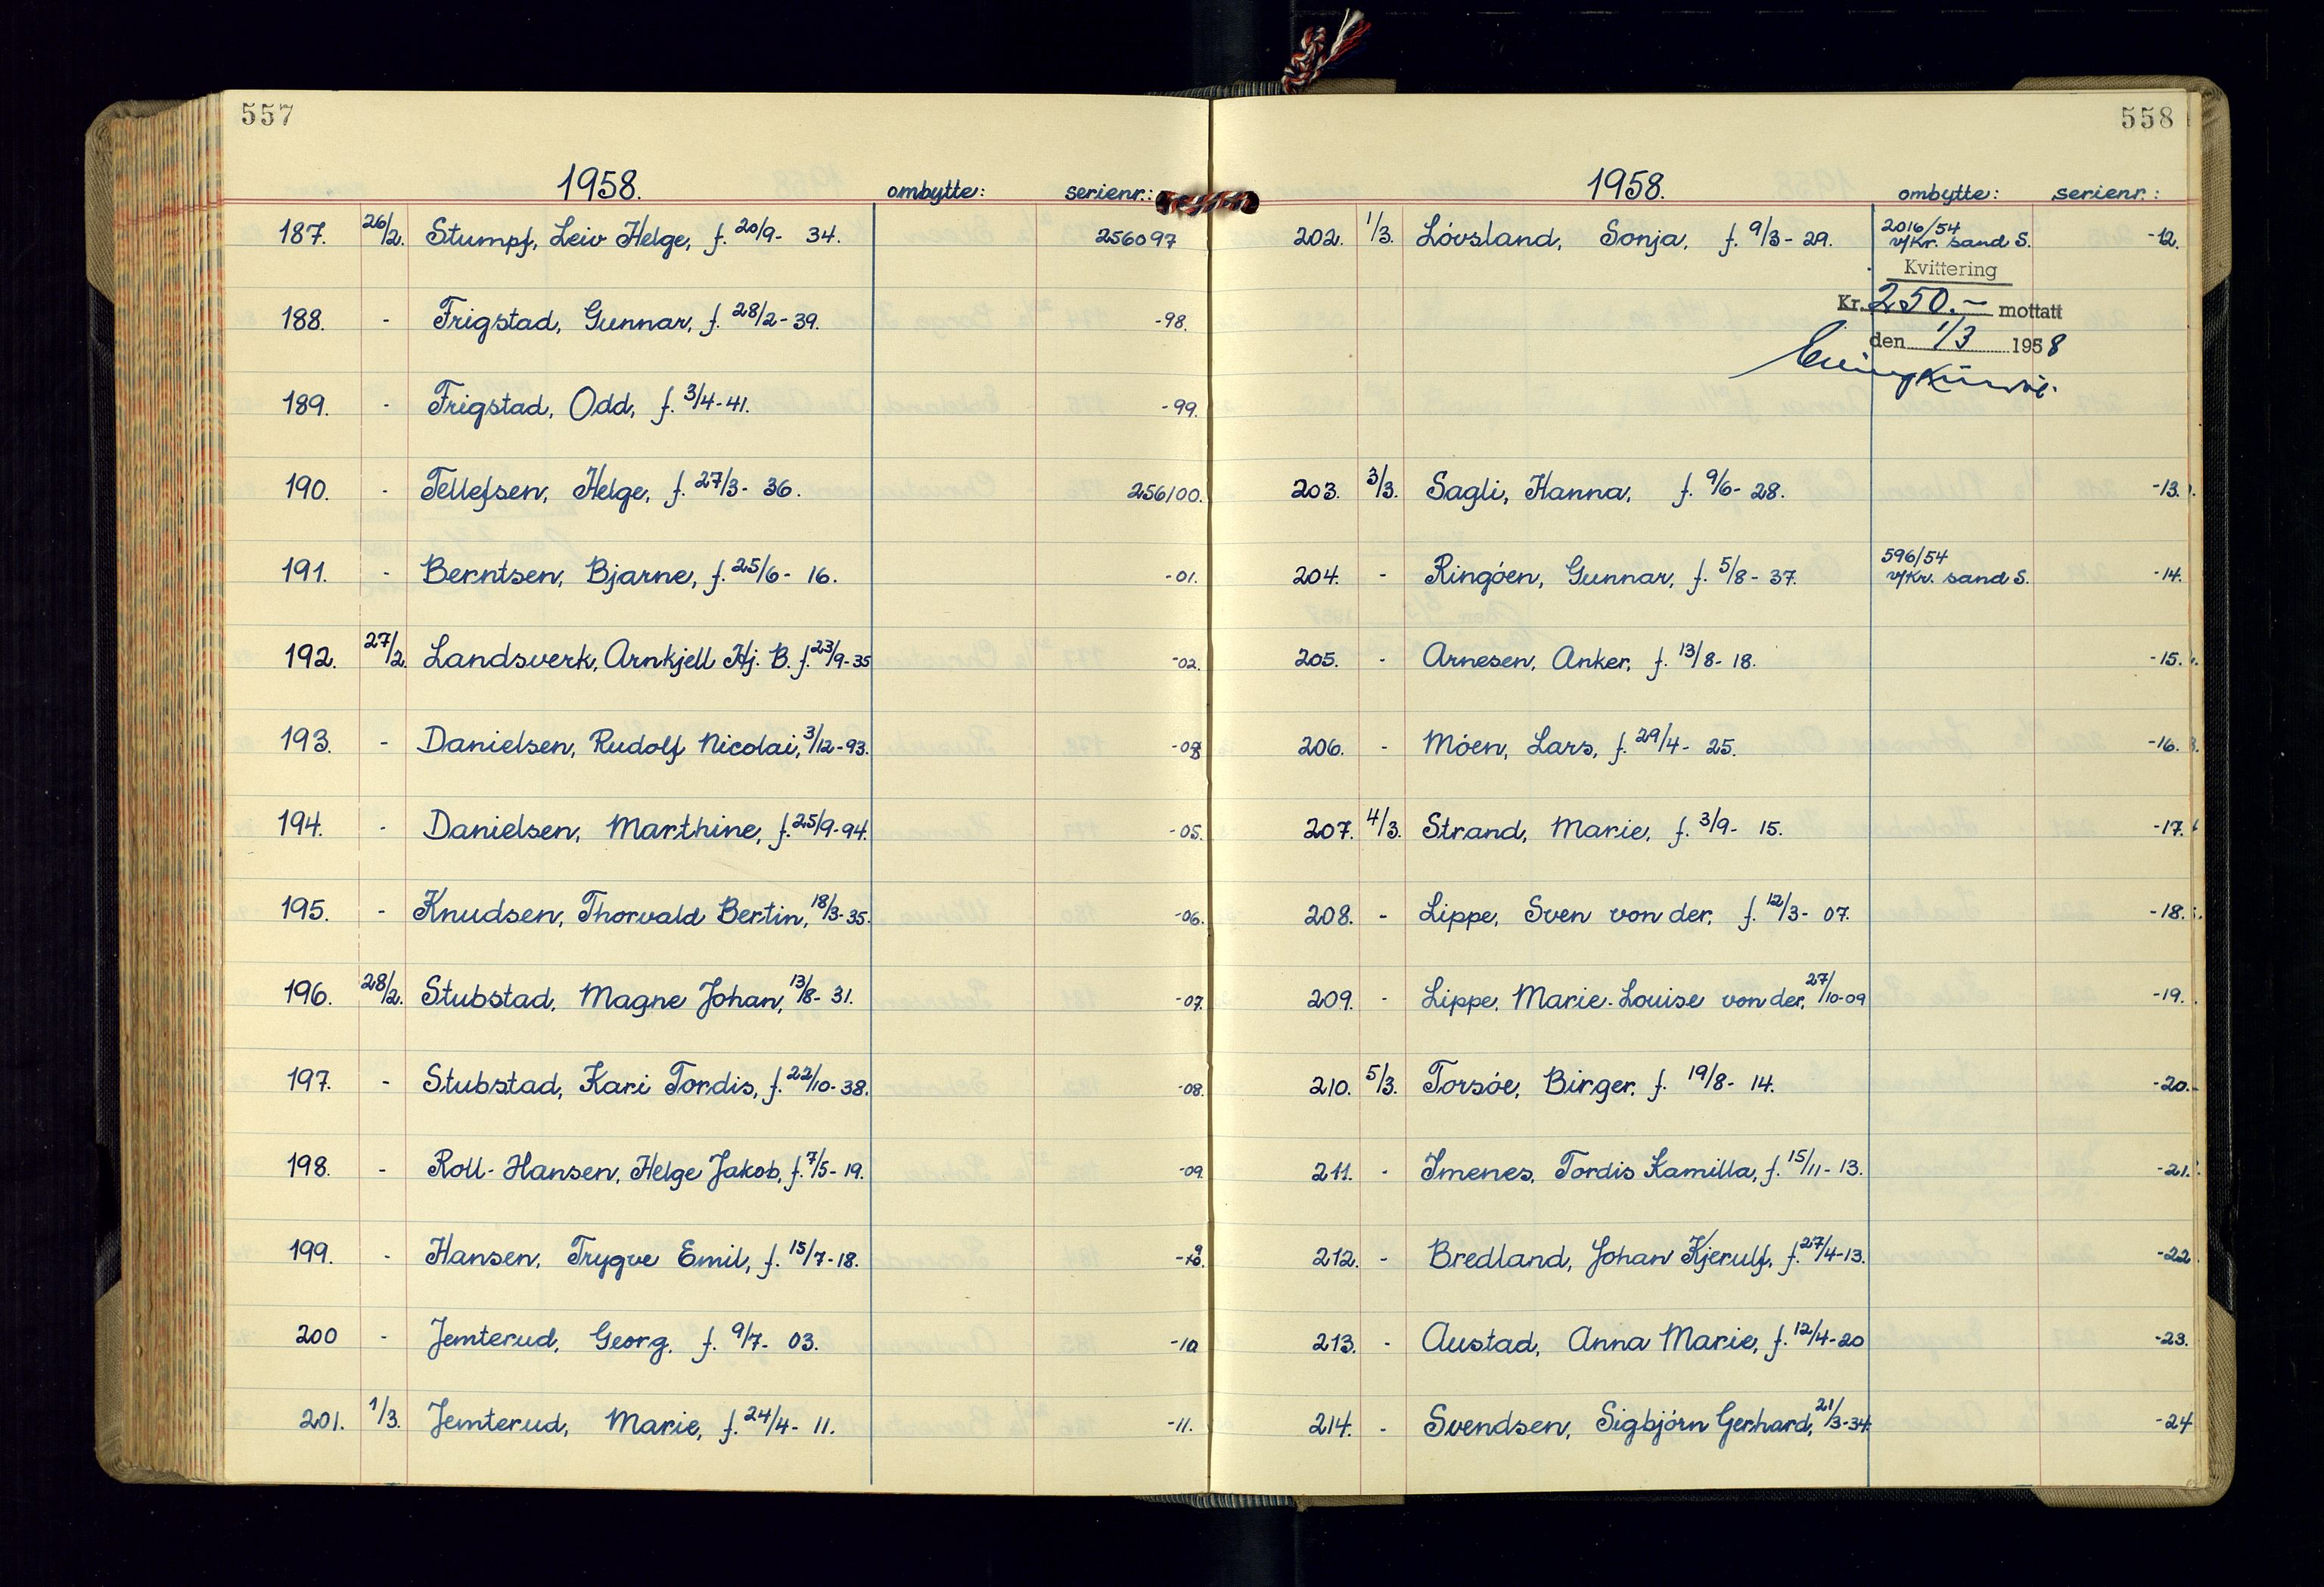 557
1958. ombytte: serienr.:
187. 26/2. Stumpf, Leiv Helge, f. 20/9- 34. 256097
188. - Frigstad, Gunnar, f. 28/2-39. -98.
189. - Frigstad, Odd, f. 3/4-41. -99.
190. - Tellefsen, Helge, f. 27/3- 36. 256100.
191. - Berntsen, Bjarne, f. 25/6- 16. -01.
192. 27/2. Landsverk, Arnkjell Hj. B. f. 23/9-35 -02.
193. - Danielsen, Rudolf Nicolai, 3/12-93.
194. - Danielsen, Marthine, f. 25/9-94. -05.
195. - Knudsen, Thorvald Bertin, 18/3-35. -06.
196. 28/2. Stubstad, Magne Johan, 13/8- 31. -07.
197. - Stubstad, Kari Tordis, f. 22/10-38. -08.
198. - Roll-Hansen, Helge Jakob, f. 7/5-19. -09.
199. - Hansen, Trygve Emil, f. 15/7-18.
200 - Jemterud, Georg, f. 9/7- 03. -10
201. 1/3. Jemterud, Marie, f. 24/4- 11. -11.
558
1958. ombytte: serienr.:
202. 1/3. Lóvsland, Sonja, f. 9/3-29. 2016/54 -12.
v/Kr. sand S.
Kvittering
Kr. 250.- mottatt
den 1/3 1958
203. 3/3. Sagli, Hanna, f. 9/6- 28. -13.
204. - Ringóen, Gunnar, f. 5/8- 37. 596/54 -14.
v/Kr. sand S.
205. - Arnesen, Anker, f. 13/8- 18. -15.
206. - Móen, Lars, f. 29/4- 25. -16.
207. 4/3. Strand, Marie, f. 3/9- 15. -17.
208. - Lippe, Sven von der, f. 12/3- 07. -18.
209. - Lippe, Marie-Louise von der, 27/10-09 -19.
210. 5/3. Torsóe, Birger, f. 19/8- 14. -20.
211. - Imenes, Tordis Kamilla, f. 15/11-13. -21.
212. - Bredland, Johan Kjerulf, f. 27/4-13. -22
213. - Austad, Anna Marie, f. 12/4-20 -23.
214. - Svendsen, Sigbjórn Gerhard, 21/3-34 -24